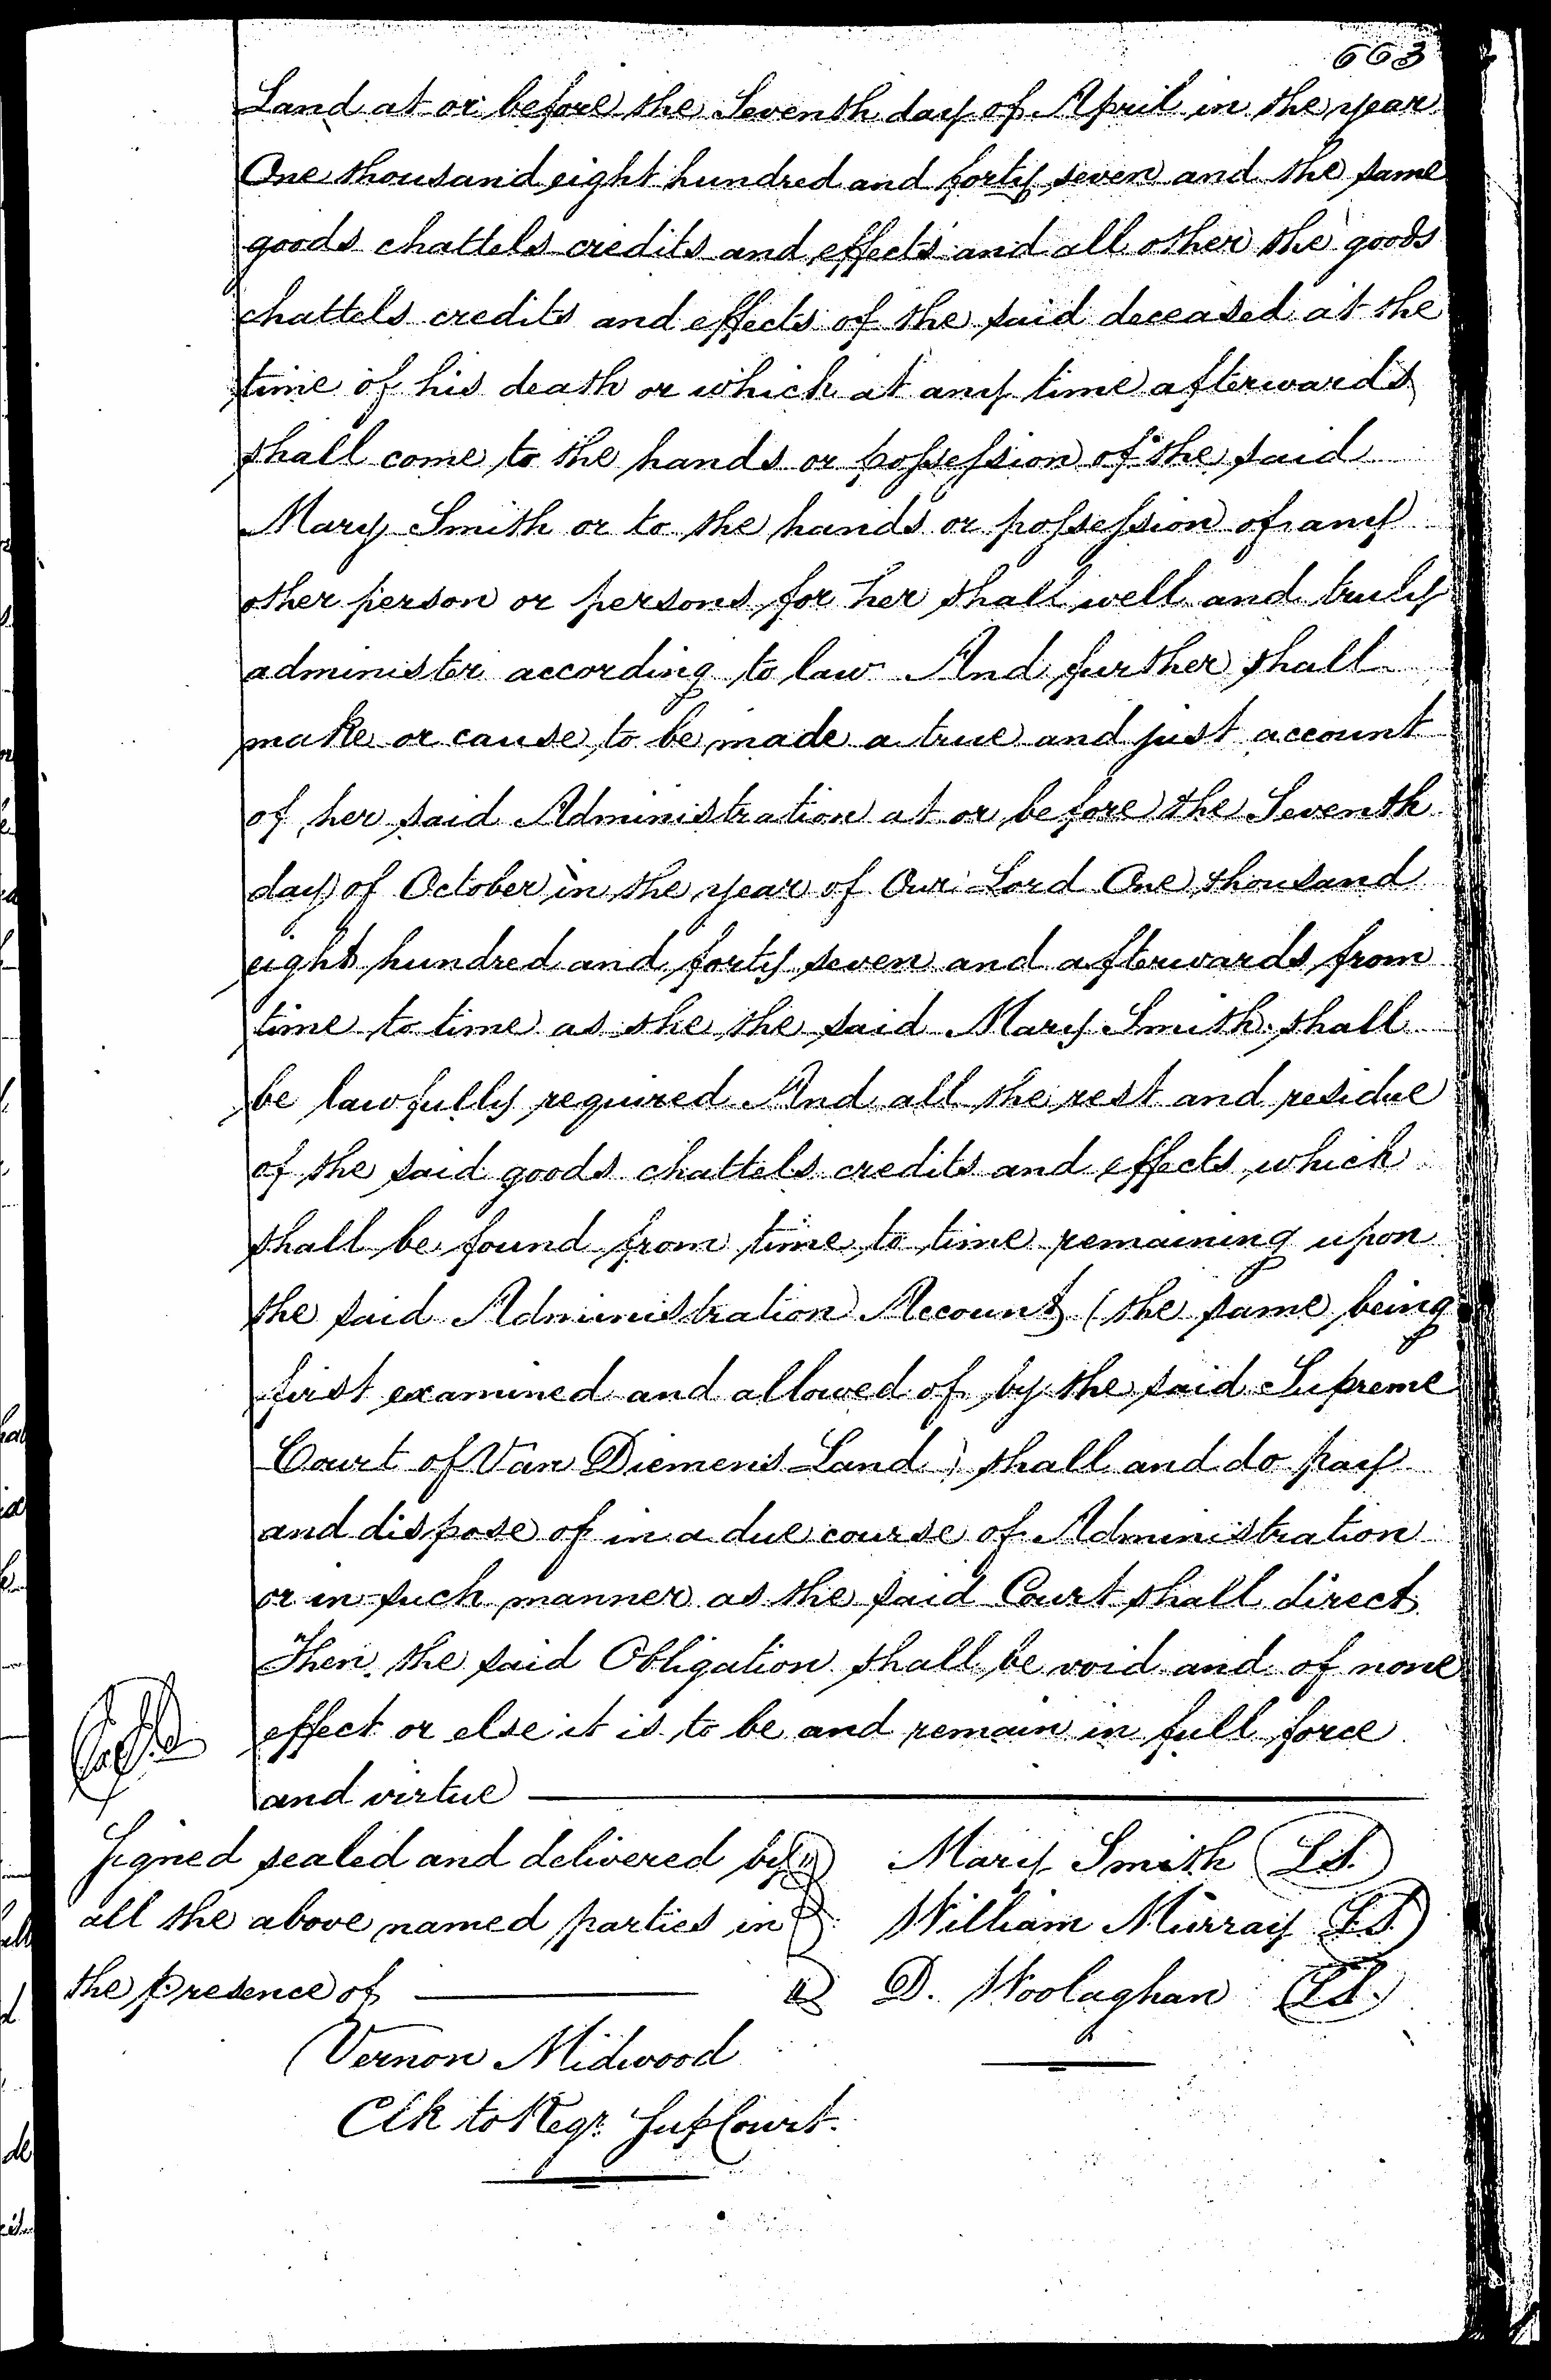 663
Land at or before the Seventh day of April in the year
One thousand eight hundred and forty seven and the same
goods chattels credits and effects and all other the goods
chattels credits and effects of the said deceased at the
time of his death or which at any time afterwards
shall come to the hands or possession of the said
Mary Smith or to the hands or possession of any
other person or persons for her shall well and truly
administer according to law And further shall
make or cause to be made a true and just account
of her said Administration at or before the Seventh
day of October in the year of Our Lord One thousand
eight hundred and forty seven and afterwards from
time to time as she the said Mary Smith shall
be lawfully required And all the rest and residue
of the said goods chattels credits and effects which
shall be found from time to time remaining upon
the said Administration Account (the same being
first examined and allowed of by the said Supreme
Court of Van Diemen's Land) shall and do pay
and dispose of in a due course of Administration
or in such manner as the said Court shall direct
Then the said Obligation shall be void and of none
effect or else it is to be and remain in full force
and virtue
Signed sealed and delivered by
all the above named parties in
the presence of
Mary Smith L.S.
William Murray L.S.
D. Woolaghan L.S.
Vernon Midwood
Clk to Regr. Sup Court.